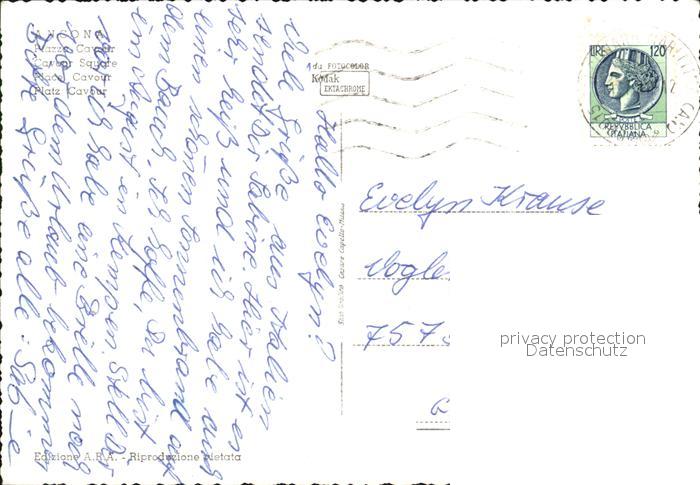 ANCONA
Piazza Cavour
Cavour Square
Place Cavour
Platz Cavour
da FOTOCOLOR
Kodak
EKTACHROME
LIRE 120
REPVBBLICA
ITALIANA
Hallo Evelyn?
Viele Grüße aus Italien
sendet dir Sabine. Hier ist es
sehr heiß und ich habe auch
einen schönen Sonnenbrand auf
dem Bauch. Ich hoffe, du bist
im August in Kempen. Stell dir
vor ich habe eine Brille noch
vor dem Urlaub bekommen
Grüße alle.
Evelyn Krause
Vogle
757
Edizione A.R.A. - Riproduzione vietata
privacy protection
Datenschutz